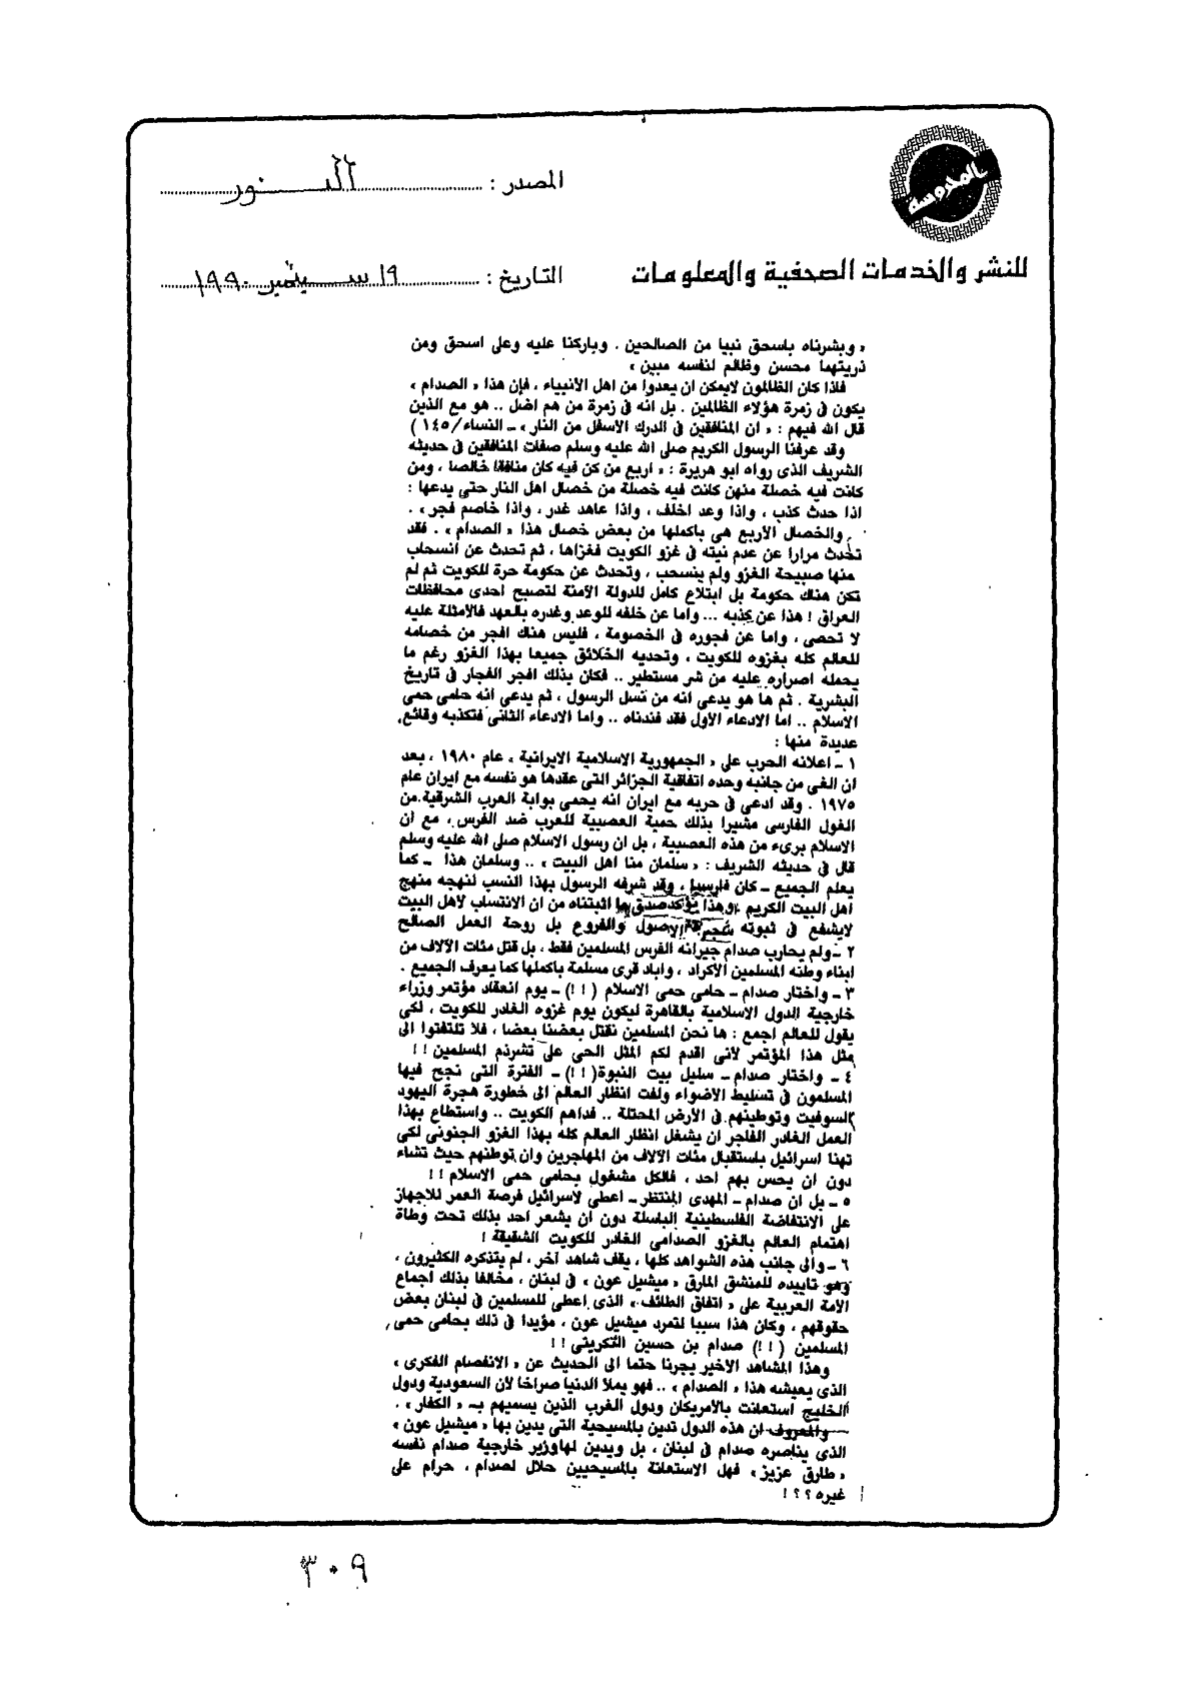 المحروسة
المصدر : النور
للنشر والخدمات الصحفية والمعلومات
التاريخ : ١٩ سبتمبر ١٩٩٠
« وبشرناه باسحق نبيا من الصالحين . وباركنا عليه وعلى اسحق ومن
ذريتهما محسن وظالم لنفسه مبين »
فاذا كان الظالمون لايمكن ان يعدوا من اهل الأنبياء ، فإن هذا « الصدام »
يكون فى زمرة هؤلاء الظالمين . بل انه فى زمرة من هم اضل .. هو مع الذين
قال الله فيهم : « ان المنافقين فى الدرك الأسفل من النار » ـ النساء/١٤٥ )
وقد عرفنا الرسول الكريم صلى الله عليه وسلم صفات المنافقين فى حديثه
الشريف الذى رواه ابو هريرة : « اربع من كن فيه كان منافقا خالصا ، ومن
كانت فيه خصلة منهن كانت فيه خصلة من خصال اهل النار حتى يدعها :
اذا حدث كذب ، واذا وعد اخلف ، واذا عاهد غدر ، واذا خاصم فجر » .
والخصال الأربع هى باكملها من بعض خصال هذا « الصدام » . فقد
تحدث مرارا عن عدم نيته فى غزو الكويت فغزاها ، ثم تحدث عن انسحاب
منها صبيحة الغزو ولم ينسحب ، وتحدث عن حكومة حرة للكويت ثم لم
تكن هناك حكومة بل ابتلاع كامل للدولة الآمنة لتصبح احدى محافظات
العراق ! هذا عن كذبه ... واما عن خلفه للوعد وغدره بالعهد فالأمثلة عليه
لا تحصى ، واما عن فجوره فى الخصومة ، فليس هناك افجر من خصامه
للعالم كله بغزوه للكويت ، وتحديه الخلائق جميعا بهذا الغزو رغم ما
يحمله اصراره عليه من شر مستطير .. فكان بذلك افجر الفجار فى تاريخ
البشرية . ثم ها هو يدعى انه من نسل الرسول ، ثم يدعى انه حامى حمى
الاسلام .. اما الادعاء الأول فقد فندناه .. واما الادعاء الثانى فتكذبه وقائع
عديدة منها :
١ ـ اعلانه الحرب على « الجمهورية الاسلامية الايرانية » عام ١٩٨٠ ، بعد
ان الغى من جانبه وحده اتفاقية الجزائر التى عقدها هو نفسه مع ايران عام
١٩٧٥ . وقد ادعى فى حربه مع ايران انه يحمى بوابة العرب الشرقية من
الغول الفارسى مشيرا بذلك حمية العصبية للعرب ضد الفرس ، مع ان
الاسلام برىء من هذه العصبية ، بل ان رسول الاسلام صلى الله عليه وسلم
قال فى حديثه الشريف : « سلمان منا اهل البيت » .. وسلمان هذا ـ كما
يعلم الجميع ـ كان فارسيا ، وقد شرفه الرسول بهذا النسب لنهجه منهج
اهل البيت الكريم . وهذا يؤكد صدق ما اثبتناه من ان الانتساب لاهل البيت
لايشفع فى ثبوته الاصول والفروع بل روحة العمل الصالح
٢ ـ ولم يحارب صدام جيرانه الفرس المسلمين فقط ، بل قتل مئات الآلاف من
ابناء وطنه المسلمين الأكراد ، واباد قرى مسلمة باكملها كما يعرف الجميع .
٣ ـ واختار صدام ـ حامى حمى الاسلام (!!) ـ يوم انعقاد مؤتمر وزراء
خارجية الدول الاسلامية بالقاهرة ليكون يوم غزوه الغادر للكويت ، لكى
يقول للعالم اجمع : ها نحن المسلمين نقتل بعضنا بعضا ، فلا تلتفتوا الى
مثل هذا المؤتمر لانى اقدم لكم المثل الحى على تشرذم المسلمين !!
٤ ـ واختار صدام ـ سليل بيت النبوة(!!) ـ الفترة التى نجح فيها
المسلمون فى تسليط الأضواء ولفت انظار العالم الى خطورة هجرة اليهود
السوفيت وتوطينهم فى الأرض المحتلة .. فداهم الكويت .. واستطاع بهذا
العمل الغادر الفاجر ان يشغل انظار العالم كله بهذا الغزو الجنونى لكى
تهنا اسرائيل باستقبال مئات الآلاف من المهاجرين وان توطنهم حيث تشاء
دون ان يحس بهم احد ، فالكل مشغول بحامى حمى الاسلام !!
٥ ـ بل ان صدام ـ المهدى المنتظر ـ اعطى لاسرائيل فرصة العمر للاجهاز
على الانتفاضة الفلسطينية الباسلة دون ان يشعر احد بذلك تحت وطاة
اهتمام العالم بالغزو الصدامى الغادر للكويت الشقيقة !
٦ ـ والى جانب هذه الشواهد كلها ، يقف شاهد آخر ، لم يتذكره الكثيرون ،
وهو تاييده للمنشق المارق « ميشيل عون » فى لبنان ، مخالفا بذلك اجماع
الأمة العربية على « اتفاق الطائف » الذى اعطى للمسلمين فى لبنان بعض
حقوقهم ، وكان هذا سببا لتمرد ميشيل عون ، مؤيدا فى ذلك بحامى حمى
المسلمين (!!) صدام بن حسين التكريتى !!
وهذا المشاهد الأخير يجرنا حتما الى الحديث عن « الانفصام الفكرى »
الذى يعيشه هذا « الصدام » .. فهو يملأ الدنيا صراخا لأن السعودية ودول
الخليج استعانت بالأمريكان ودول الغرب الذين يسميهم بـ « الكفار » .
والمعروف ان هذه الدول تدين بالمسيحية التى يدين بها « ميشيل عون »
الذى يناصره صدام فى لبنان ، بل ويدين لها وزير خارجية صدام نفسه
« طارق عزيز » فهل الاستعانة بالمسيحيين حلال لصدام ، حرام على
غيره ؟؟ !
٣٠٩